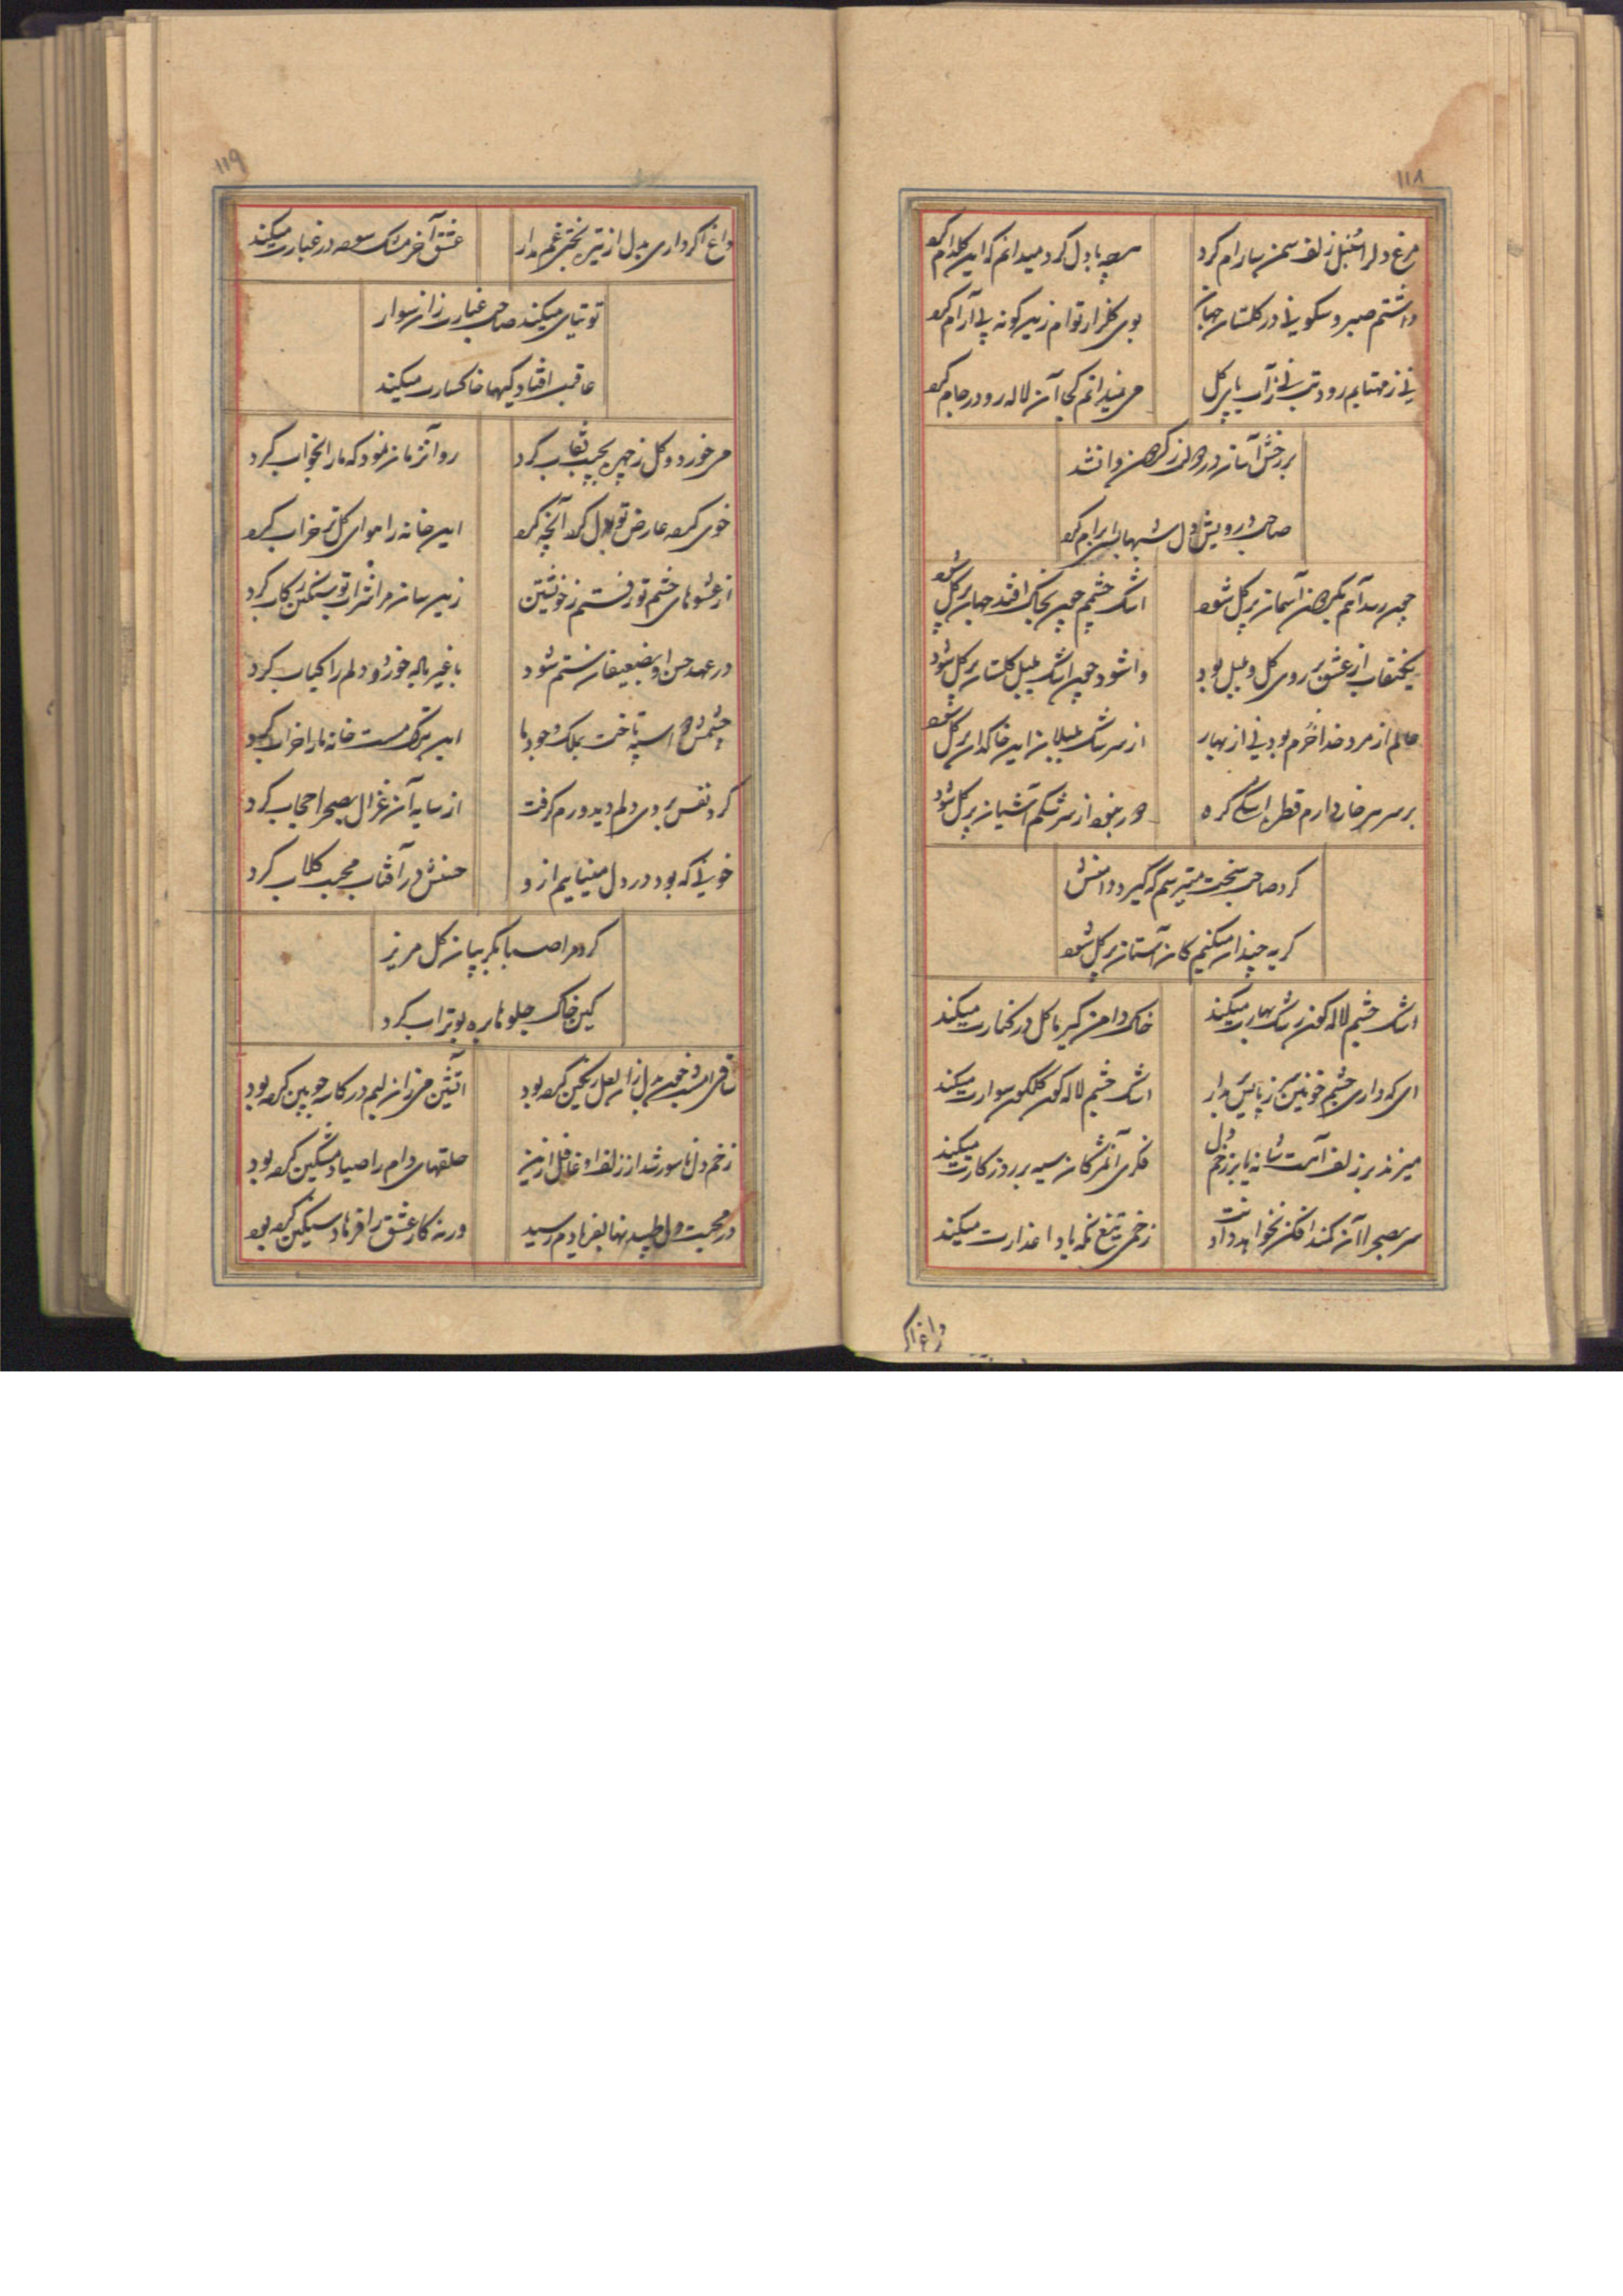 ۱۱۸
مرغ دلرا سنبل زلف سمن سا رام کرد بادل کرد میدانم که این گلدام کرد
داشتم صبر و سکونی در گلستان جهان بوی گلزار توام زین گونه بی آرام کرد
نی ز مهتابم رود تب نی ز آب پای گل می نمیدانم کجا آن لاله رو در جام کرد
بر رخش آسان در از گره من وا نشد
صاحب درویش دل شبها بسی ابرام کرد
چون رسد آهم بگردون آسمان پر گل شود اشک چشمم چون بخاک افتد جهان پر گل شود
از عشق بر روی گل و بلبل بود وا شود چون اشک بلبل گلستان پر گل شود
عالم از مرد خدا خرم بود نی از بهار از سرشک بلبلان این خاکدان پر گل شود
بر سر هر خار دارم قطره اشکی گره دور نبود از سرشکم آشیان پر گل شود
کرد صاحب سخت میترسم که گیرد دامنش
گریه چندان میکنم کان آستان پر گل شود
اشک چشم لاله گون رشک بهارت میکند خاک دامن گیر ما گل در کنارت میکند
ای که داری چشم خونین سر ز پا پس مدار اشک چشم لاله گون گلگون سوارت میکند
میزند بر زلف آن بت شانه یا بر زخم دل فکری آن مژگان سیه بر روزگارت میکند
سر بصحرا آن کمند افکن نخواهد دادنت زخمی تیغ نگه یا داغدارت میکند
داغ اگر
۱۱۹
داغ اگر داری بدل از تیره بختی غم مدار عشق آخر مشک سوده در غبارت میکند
توتیای میکند صاحب غبارت زان سوار
عاقبت افتادگیها خاکسارت میکند
می خورد و گل ز چهره بجیب نقاب کرد رو آنزمان نمود که ما را بخواب کرد
خوی کرده عارض تو بدل کرد آنچه کرد این خانه را هوای گل تر خراب کرد
از عشوهای چشم تو رفتم ز خویشتن زین سان مرا شراب تو سنگین رکاب کرد
در عهد حسن او بضعیفان ستم شود با غیر باده خورد و دلم را کباب کرد
چشمش سیه تاخت بملک وجود ما این ترک مست خانه ما را خراب کرد
گرد نفس بروی دلم دید و رم گرفت از سایه آن غزال بصحرا حجاب کرد
خونی که بود در دل مینایم از و حسنش در آفتاب محبت گلاب کرد
گرد مرا صبا بگریبان گل مریز
کین خاک جلوها بره بوتراب کرد
ساقی امشب خون بدل زان لعل رنگین کرده بود آتشین می زان لبم در کاسه چوبین کرده بود
زخم دل ناسور شد از زلف او غافل ازین حلقهای دام را صیاد مشگین کرده بود
در محبت دل طپیدنها بفریادم رسید ورنه کار عشق را فرهاد سنگین کرده بود